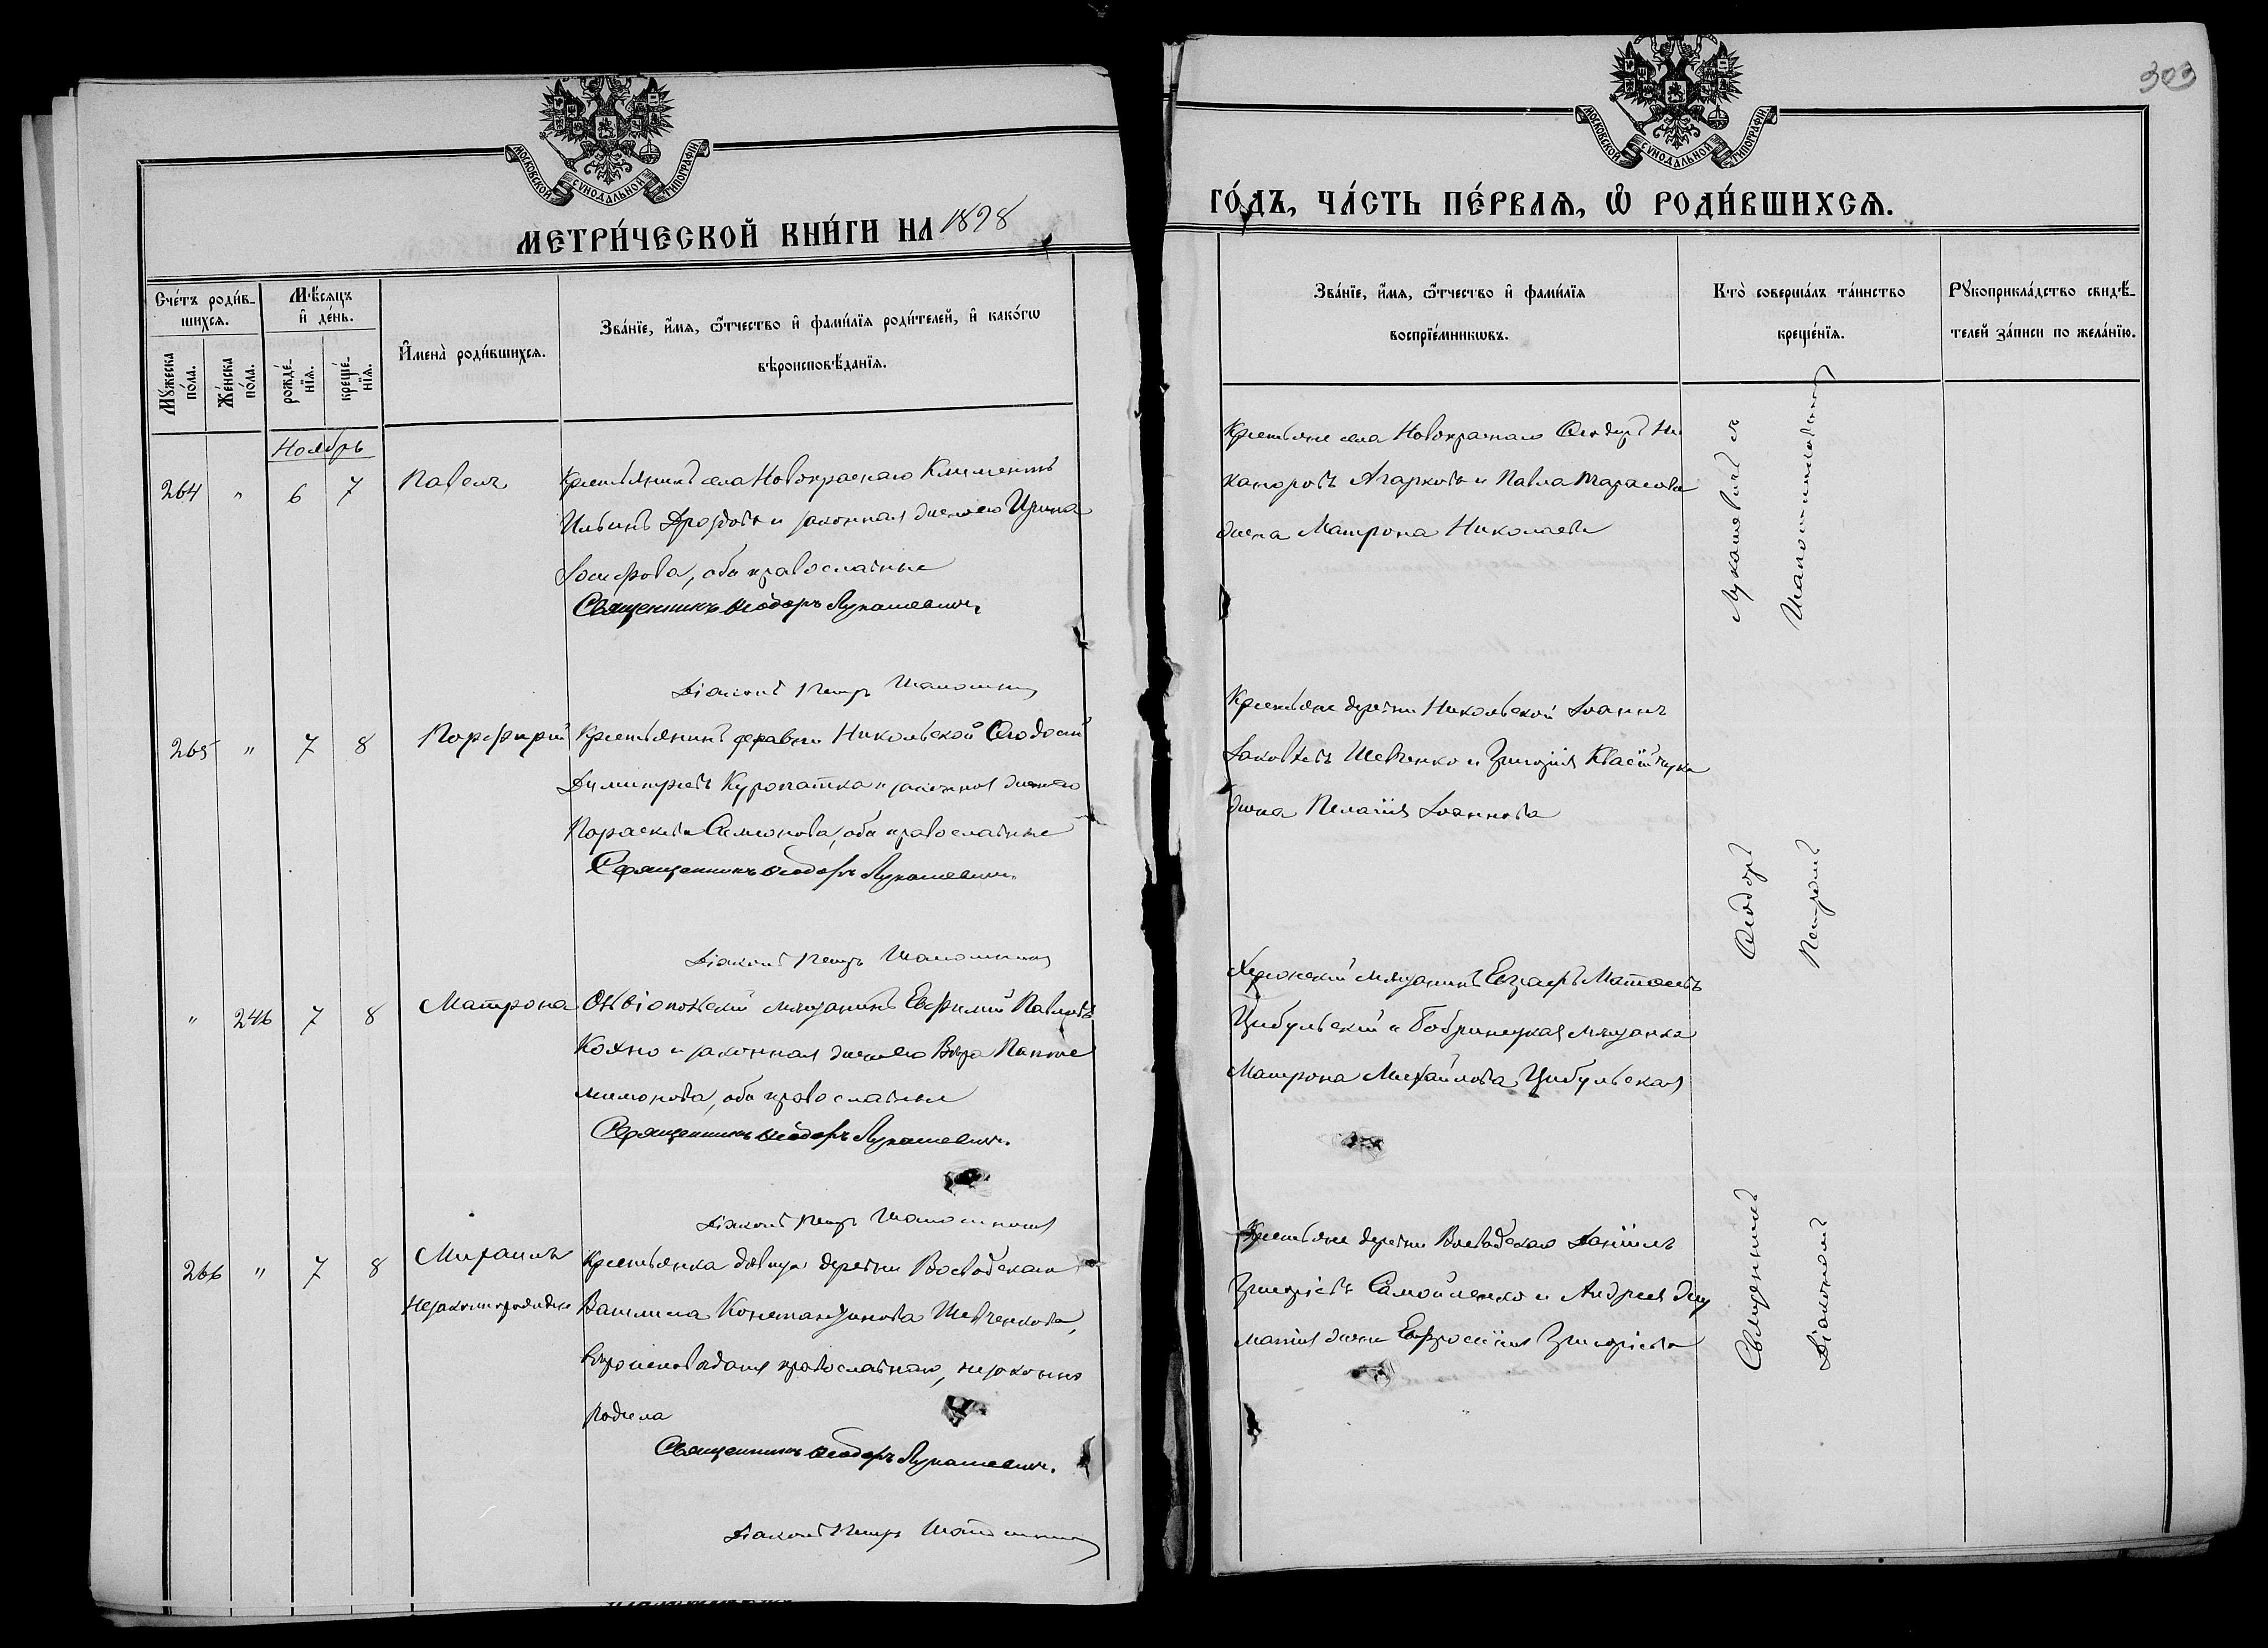 МОСКОВСКОЙ СѴНОДАЛЬНОЙ ТИПОГРАФІИ
МЕТРИ́ЧЕСКОЙ КНИ́ГИ НА 1898
Сче́тъ роди́в-
шихся.
Мѣ́сяцъ
и҆ де́нь.
Мꙋ́жеска
по́ла.
Же́нска
по́ла.
рожде́-
нїя.
креще́-
нїя.
И҆мена̀ роди́вшихся.
Зва́нїе, и҆́мя, ѻ҆́тчество и҆ фами́лїя роди́телей, и҆ како́гѡ
вѣроисповѣ́данїя.
Ноябрь
264 " 6 7 Павелъ Крестьянинъ села Новокраснаго Климентъ
Ильинъ Дроздовъ и законная жена его Ирина
Іосифова, оба православные
Священникъ Ѳеодоръ Лукашевичъ
Діаконъ Петръ
265 " 7 8 Порфирій Крестьянинъ деревни Никольской Ѳеодосій
Димитріевъ Куропатка и законная жена его
Параскева Симеонова, оба православные
Священникъ Ѳеодоръ Лукашевичъ.
Діаконъ Петръ
" 246 7 8 Матрона Ольвіопольскій мѣщанинъ Евфимій Павловъ
Кохно и законная жена его Вѣра Пантеле
имонова, оба православные
Священникъ Ѳеодоръ Лукашевичъ.
Діаконъ Петръ
266 " 7 8 Михаилъ Крестьянка дѣвица деревни Воеводскаго
Незаконнорожден Василиса Константинова Шевченкова,
вѣроисповѣданія православнаго, незаконно
родила
Священникъ Ѳеодоръ Лукашевичъ.
Діаконъ Петръ
303
МОСКОВСКОЙ СѴНОДАЛЬНОЙ ТИПОГРАФІИ
ГО́ДЪ, ЧА́СТЬ ПЕ́РВАЯ, Ѡ҆ РОДИ́ВШИХСЯ.
Зва́нїе, и҆́мя, ѻ҆́тчество и҆ фами́лїя
воспрїе́мникѡвъ.
Кто̀ соверша́лъ та́инство
креще́нїя.
Рꙋкоприкла́дство свидѣ́-
телей за́писи по жела́нїю.
Крестьяне села Новокраснаго Ѳеодоръ Ни
каноровъ Агарковъ и Павла Тарасова
жена Матрона Николаева
Крестьяне деревни Никольской Іоаннъ
Іаковлевъ Шевченко и Григорія
жена Пелагія Іоаннова
Херсонскій мѣщанинъ Матвеевъ
Цибульскій и Бобринецкая мѣщанка
Матрона Михайлова Цибульская
Крестьяне деревни Воеводскаго Даніилъ
Григоріевъ Самойленко и Андрея
жена Евфросинія Григоріева
Священникъ Ѳеодоръ Лукашевичъ съ
Діакономъ Петромъ